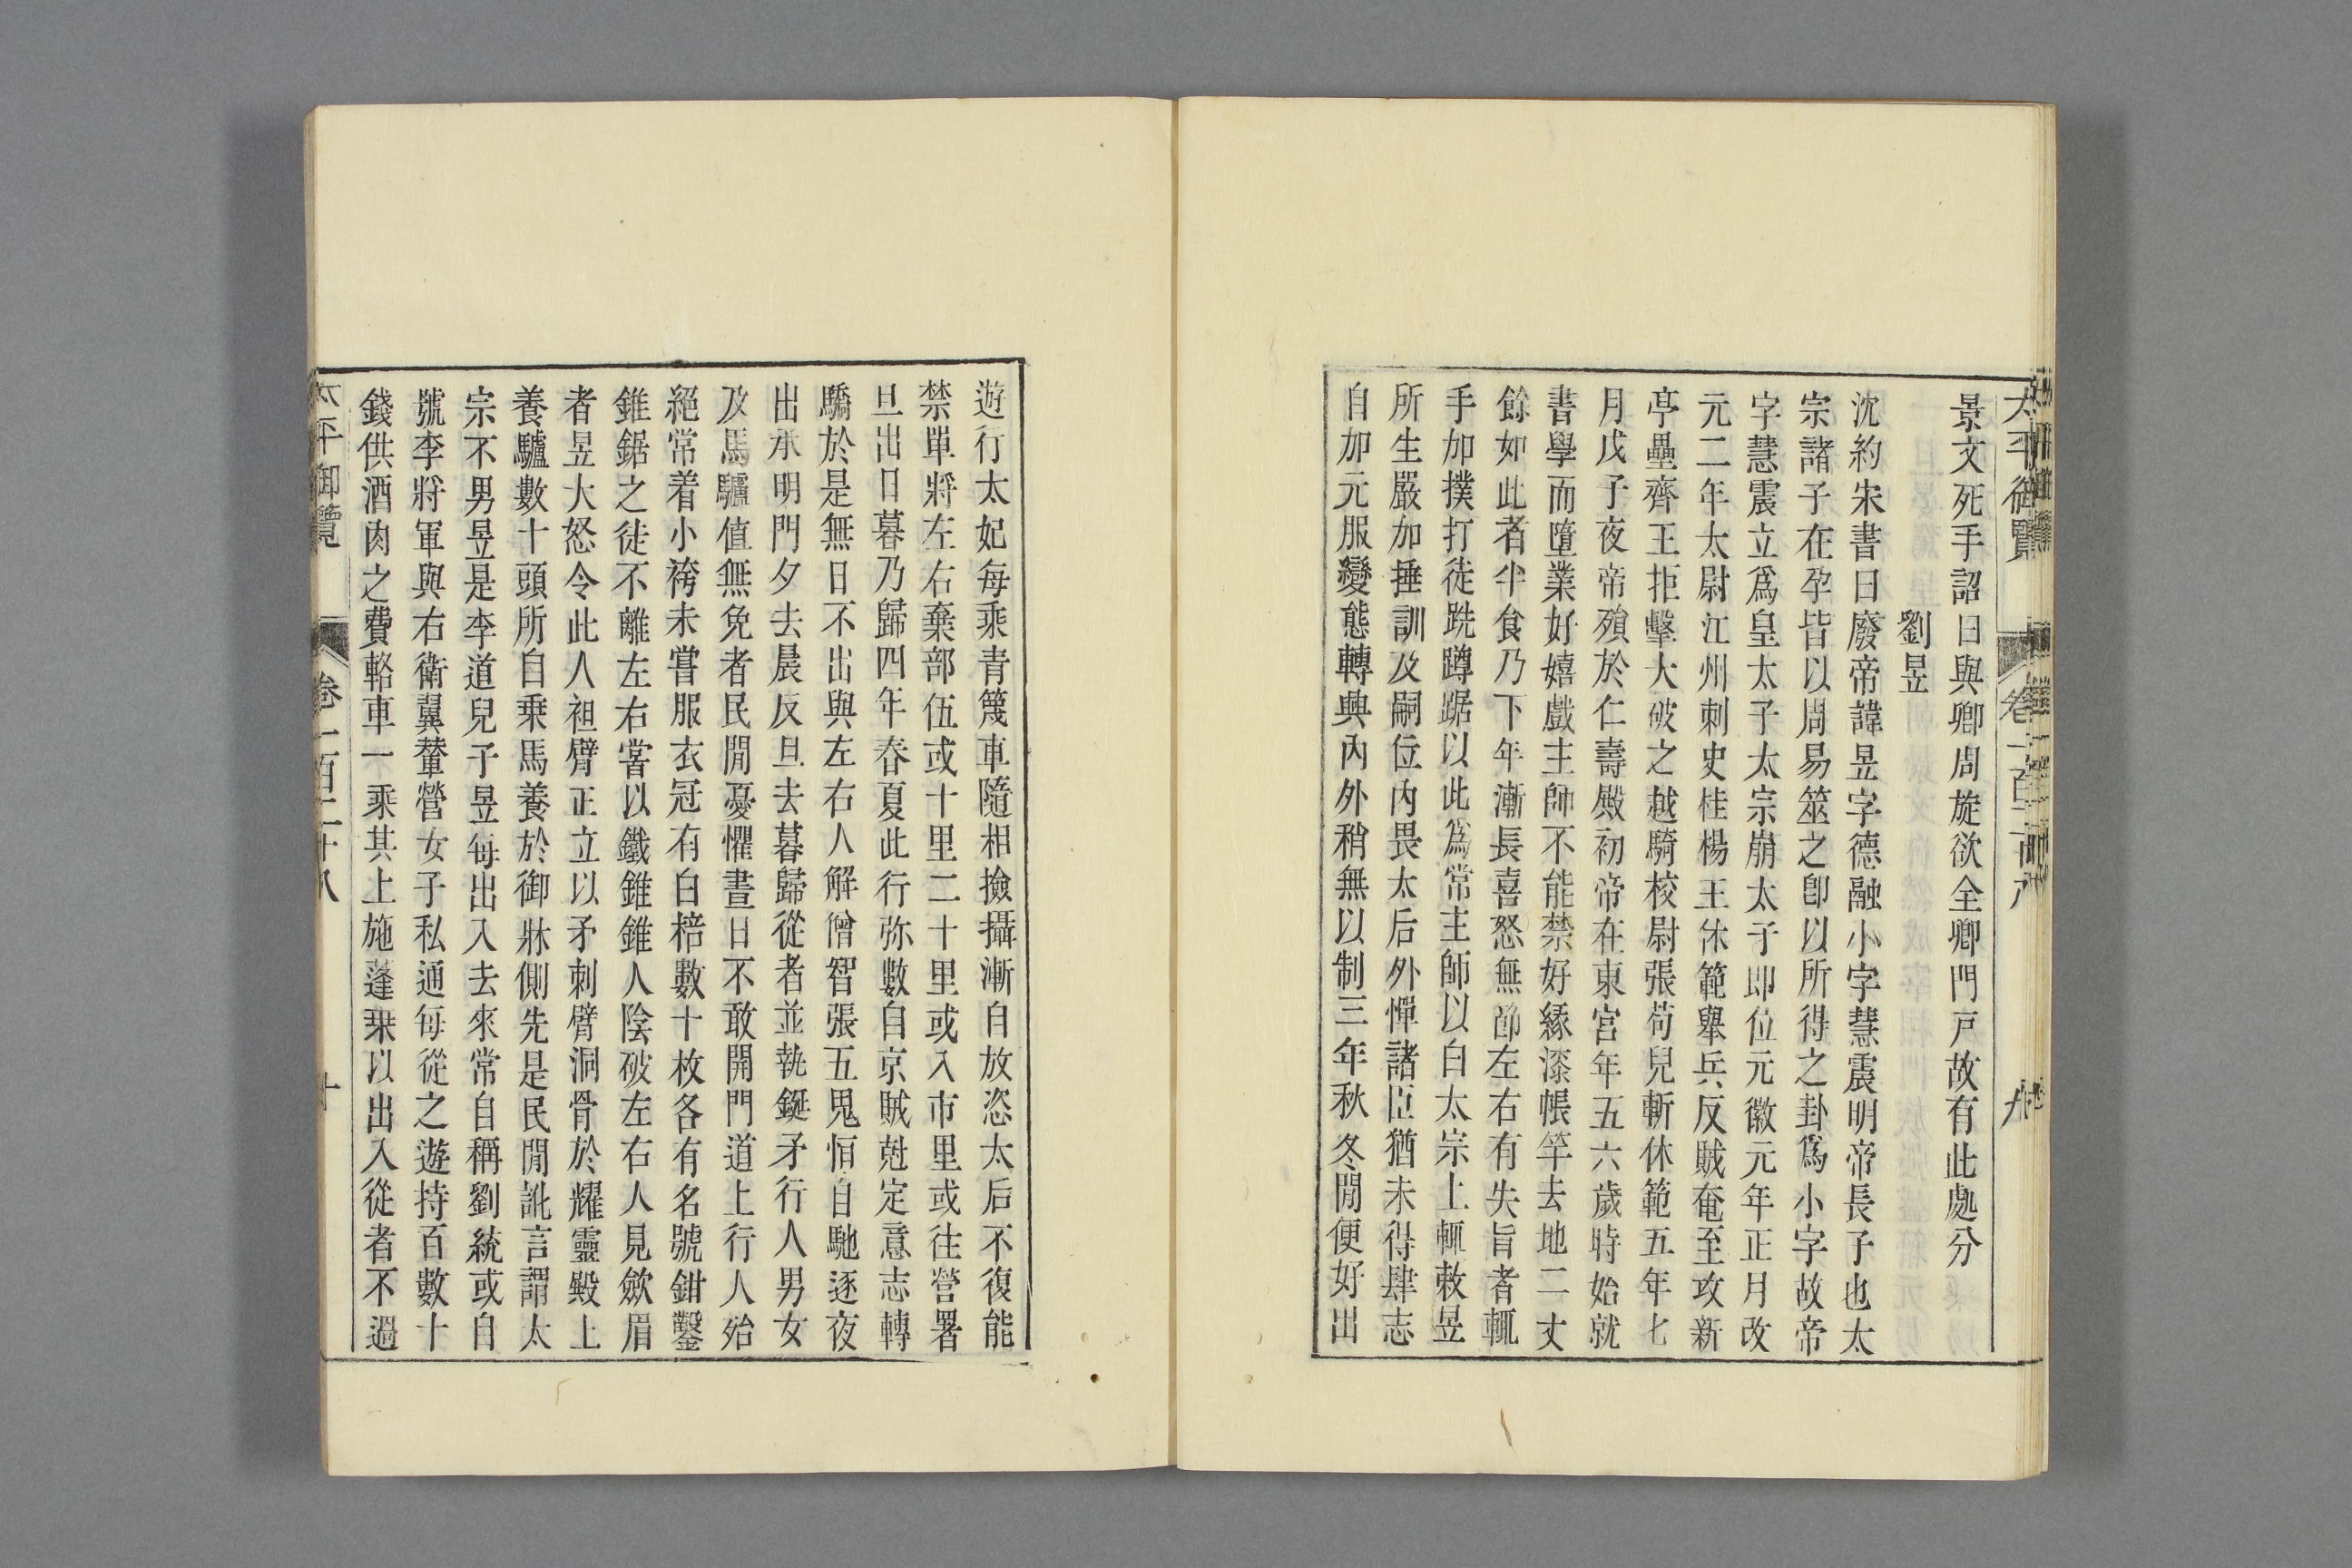 景文死手詔曰與卿周旋欲全卿門戸故有此處分
劉昱
沈約宋書曰廢帝諱昱字德融小字慧震明帝長子也太
宗諸子在孕皆以周易筮之卽以所得之卦爲小字故帝
字慧震立爲皇太子太宗崩太子即位元徽元年正月改
元二年太尉江州刺史桂楊王休範舉兵反賊奄至攻新
亭壘齊王拒擊大破之越騎校尉張苟兒斬休範五年七
月戊子夜帝殞於仁壽殿初帝在東宮年五六歲時始就
書學而墮業好嬉戲主帥不能禁好緣漆帳竿去地二丈
餘如此者半食乃下年漸長喜怒無節左右有失旨者輒
手加撲打徒跣蹲踞以此爲常主師以白太宗上輒敕昱
所生嚴加捶訓及嗣位內畏太后外憚諸臣猶未得肆志
自加元服變態轉興內外稍無以制三年秋冬閒便好出
遊行太妃每乘青篾車隨相撿攝漸自放恣太后不復能
禁單將左右棄部伍或十里二十里或入市里或往營署
旦出日暮乃歸四年春夏此行弥數自京賊尅定意志轉
驕於是無日不出與左右人解僧智張五皃恒自馳逐夜
出承明門夕去晨反旦去暮歸從者並執鋋矛行人男女
及馬驢值無免者民閒憂懼晝日不敢開門道上行人殆
絕常着小袴未嘗服衣冠有白棓數十枚各有名號鉗鑿
錐鋸之徒不離左右嘗以鐵錐錐人陰破左右人見歛眉
者昱大怒令此人袒臂正立以矛刺臂洞骨於耀靈殿上
養驢數十頭所自乗馬養於御牀側先是民閒訛言謂太
宗不男昱是李道兒子昱每出入去來常自稱劉統或自
號李將軍與右衛翼輦營女子私通每從之遊持百數十
錢供酒肉之費輅車一乘其上施蓬乗以出入從者不過
太平御覽 卷一百二十八 十